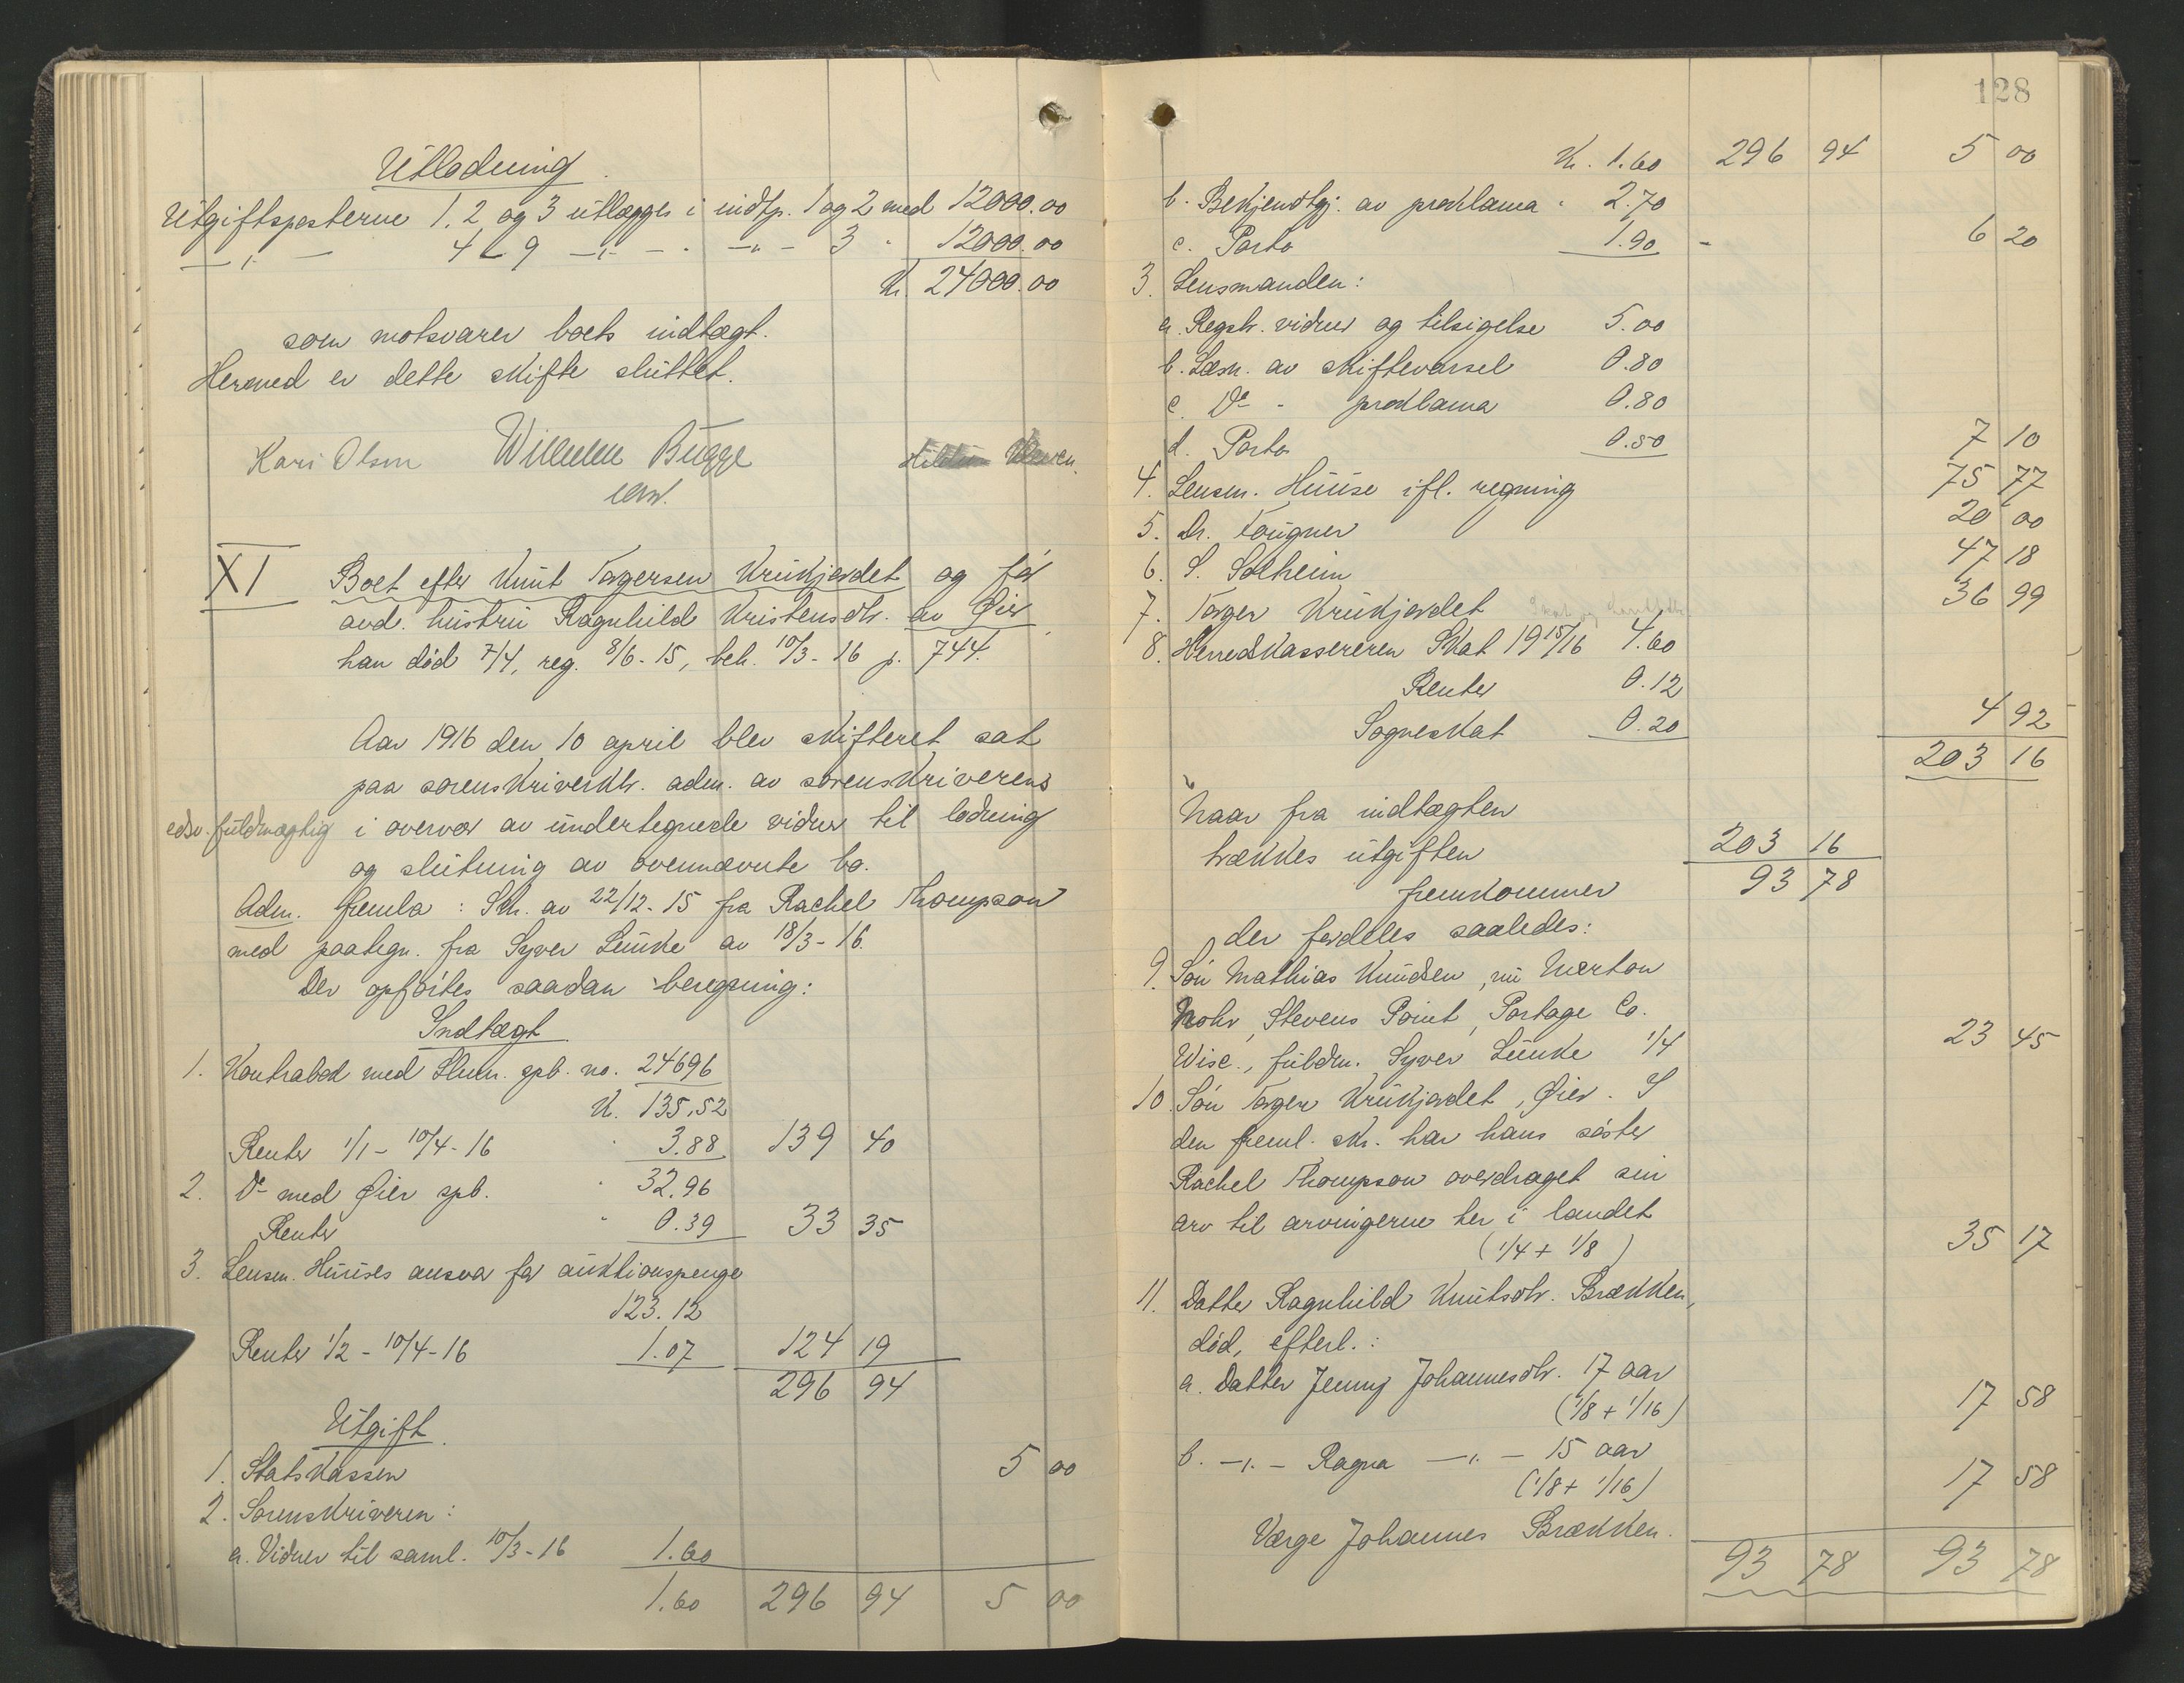 Utlodning
Utgiftsposterne 1, 2 og 3 utlægges i indtp. 1 og 2 med 12000.00
—„— 4 - 9 —„— - —„— 3 " 12000.00
Kr. 24000.00
som motsvarer boets indtægt.
Hermed er dette skifte sluttet.
Kari Olsen Wilhelm Bugge
const.
XI Boet efter Knut Torgersen Krukjordet og før
avd. hustru Ragnhild Kristensdtr. av Øier
han død 7/4, reg. 8/6-15, beh. 10/3-16 p. 744.
Aar 1916 den 10 april blev skifteret sat
paa sorenskriverktr. adm. av sorenskriverens
edsv. fuldmægtig i overvær av undertegnede vidner til lodning
og slutning av ovennævnte bo.
Adm. fremla: Skr. av 22/12-15 fra Rachel Thompson
med paategn. fra Syver Lunke av 18/3-16.
Der opførtes saadan beregning:
Indtægt
1. Kontrabok med Lhmr. spb. no. 24696
K. 135,52
Renter 1/1 - 10/4-16 " 3.88 139 40
2. Do med Øier spb. " 32.96
Renter " 0.39 33 35
3. Lensm. Huuses ansvar for auktionspenge
123.12
Renter 1/2 - 10/4-16 1.07 124 19
296 94
Utgift
1. Statskassen 5 00
2. Sorenskriveren:
a. Vidner til saml. 10/3-16 1.60
1.60 296 94 5 00
128
Kr. 1.60 296 94 5 00
b. Bekjendtgj. av proklama " 2.70
c. Porto 1.90 - 6 20
3. Lensmanden:
a. Regstr. vidner og tilsigelse 5.00
b. Læsn. av skiftevarsel 0.80
c. Do - proklama 0.80
d. Porto 0.50 7 10
4. Lensm. Huuse ifl. regning 75 77
5. Dr. Fougner 20 00
6. S. Solheim 47 18
7. Torger Krukjordet 36 99
8. Herredskassereren Skat 1915/16 4.60
Renter 0.12
Sogneskat 0.20 4 92
203 16
Naar fra indtægten
trækkes utgiften 203 16
fremkommer 93 78
der fordeles saaledes:
9. Søn Mathias Knudsen, nu Merton
Mohr, Stevens Point, Portage Co.
Wisc., fuldm. Syver Lunke 1/4 23 45
10. Søn Torger Krukjordet, Øier. I
den freml. skr. har hans søster
Rachel Thompson overdraget sin
arv til arvingerne her i landet
(1/4 + 1/8) 35 17
11. Datter Ragnhild Knutsdtr. Brækken,
død, efterl.:
a. Datter Jenny Johannesdtr. 17 aar
(1/8 + 1/16) 17 58
b. —„— Ragna —„— 15 aar
(1/8 + 1/16) 17 58
Værge Johannes Brækken.
93 78 93 78